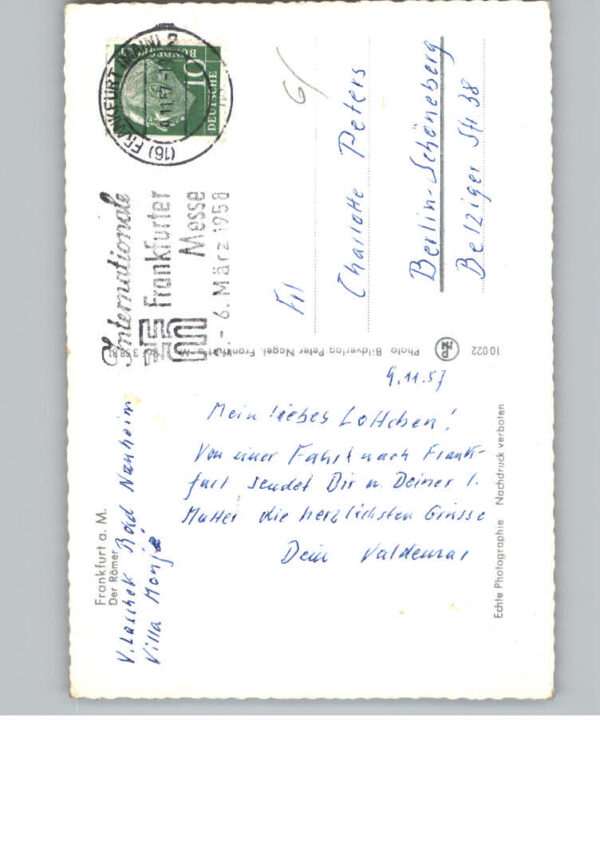 Frankfurt a. M.
Der Römer
V. Laschek Bad Nauheim
Villa Monja
9.11.57
Mein liebes Lottchen!
Von einer Fahrt nach Frank-
furt sendet Dir u. Deiner l.
Mutter die herzlichsten Grüsse
Dein Valdemar
Echte Photographie Nachdruck verboten
Photo Bildverlag Peter Nagel, Frankfurt
10022
(16) FRANKFURT (MAIN) 2
11.57
DEUTSCHE
BUNDESPOST
10
Internationale
Frankfurter
Messe
- 6. März 1958
Frl
Charlotte Peters
Berlin-Schöneberg
Belziger Str 38